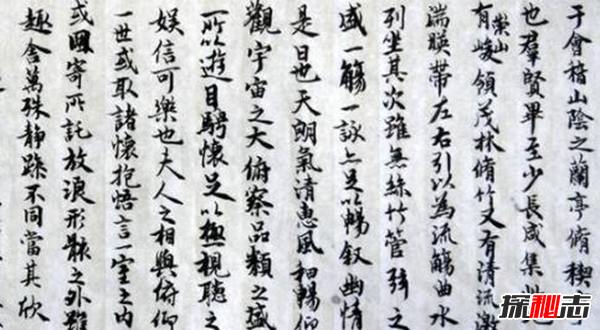 于會稽山陰之蘭亭脩禊事
也羣賢畢至少長咸集此
有崇山峻領茂林脩竹又有清流激
湍暎帶左右引以為流觴曲水
列坐其次雖無絲竹管弦之
盛一觴一詠亦足以暢叙幽情
是日也天朗氣清惠風和暢仰
觀宇宙之大俯察品類之盛
所以遊目騁懷足以極視聽之
娛信可樂也夫人之相與俯仰
一世或取諸懷抱悟言一室之內
或因寄所託放浪形骸之外雖
趣舍萬殊靜躁不同當其欣
探秘志